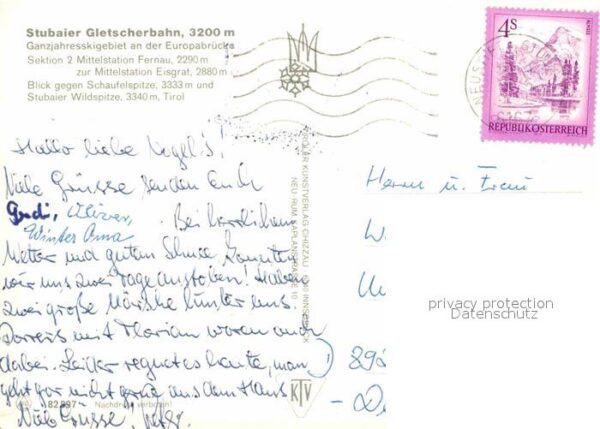 Stubaier Gletscherbahn, 3200 m
Ganzjahresskigebiet an der Europabrücke
Sektion 2 Mittelstation Fernau, 2290 m
zur Mittelstation Eisgrat, 2880 m
Blick gegen Schaufelspitze, 3333 m und
Stubaier Wildspitze, 3340 m, Tirol
4S
REPUBLIK ÖSTERREICH
Hallo liebe Vogel's!
Viele Grüsse senden Euch
Gudi,
Winter Oma
Bei herrlichem
Wetter und gutem Schnee konnten
wir uns zwei Tage austoben! Haben
zwei große Märsche hinter uns.
mit Florian waren auch
dabei. Leider regnet es heute, man
geht gar nicht gerne aus dem Haus
Viele Grüsse,
Herrn u. Frau
W
privacy protection
Datenschutz
TIROLER KUNSTVERLAG CHIZZALI
INNSBRUCK
NEU-RUM, KAPLANSTRASSE 10
KTV
82 897 Nachdruck verboten!